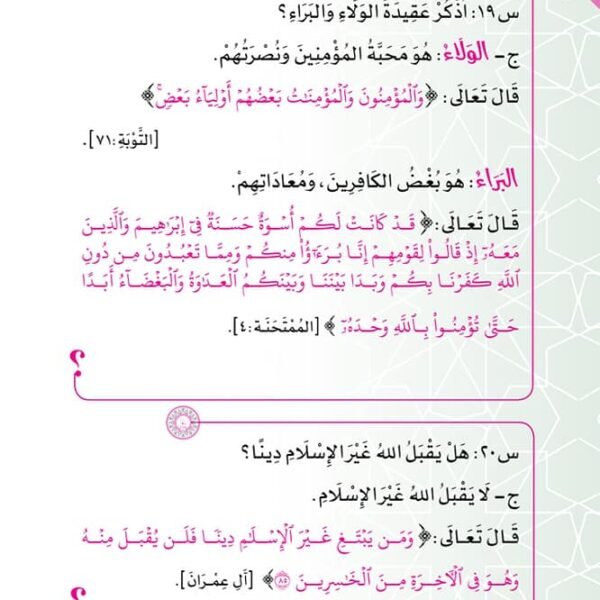 س١٩: اُذْكُرْ عَقِيدَةَ الوَلَاءِ وَالبَرَاءِ؟
ج- الوَلَاءُ: هُوَ مَحَبَّةُ المُؤْمِنِينَ وَنُصْرَتُهُمْ.
قَالَ تَعَالَى: ﴿وَٱلْمُؤْمِنُونَ وَٱلْمُؤْمِنَٰتُ بَعْضُهُمْ أَوْلِيَآءُ بَعْضٖۚ﴾
[التَّوْبَةِ:٧١].
البَرَاءُ: هُوَ بُغْضُ الكَافِرِينَ، وَمُعَادَاتِهِمْ.
قَالَ تَعَالَى: ﴿قَدْ كَانَتْ لَكُمْ أُسْوَةٌ حَسَنَةٌ فِىٓ إِبْرَٰهِيمَ وَٱلَّذِينَ
مَعَهُۥٓ إِذْ قَالُوا۟ لِقَوْمِهِمْ إِنَّا بُرَءَٰٓؤُا۟ مِنكُمْ وَمِمَّا تَعْبُدُونَ مِن دُونِ
ٱللَّهِ كَفَرْنَا بِكُمْ وَبَدَا بَيْنَنَا وَبَيْنَكُمُ ٱلْعَدَٰوَةُ وَٱلْبَغْضَآءُ أَبَدًا
حَتَّىٰ تُؤْمِنُوا۟ بِٱللَّهِ وَحْدَهُۥٓ﴾ [المُمْتَحَنَة:٤].
؟
س٢٠: هَلْ يَقْبَلُ اللهُ غَيْرَ الإِسْلَامِ دِينًا؟
ج- لَا يَقْبَلُ اللهُ غَيْرَ الإِسْلَامِ.
قَالَ تَعَالَى: ﴿وَمَن يَبْتَغِ غَيْرَ ٱلْإِسْلَٰمِ دِينًا فَلَن يُقْبَلَ مِنْهُ
وَهُوَ فِى ٱلْأَخِرَةِ مِنَ ٱلْخَٰسِرِينَ ٨٥﴾ [آلِ عِمْرَانَ].
؟